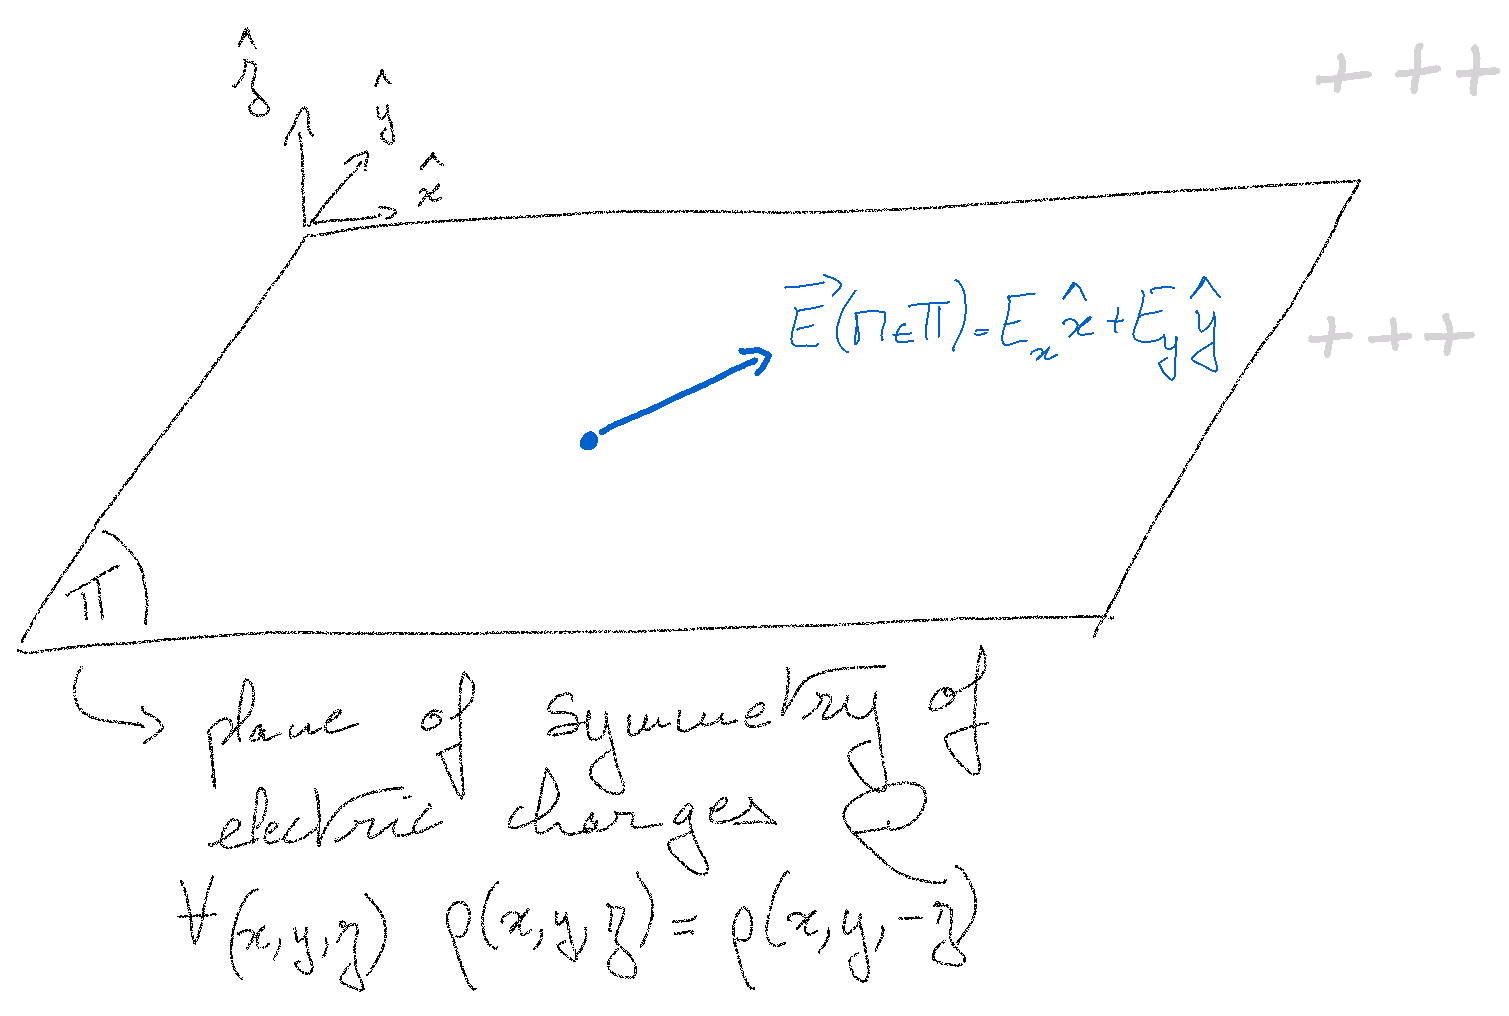 ẑ
ŷ
x̂
+ + +
E⃗(M∈Π) = Eₓ x̂ + E_y ŷ
+ + +
Π
plane of symmetry of
electric charges
∀(x,y,z) ρ(x,y,z) = ρ(x,y,-z)